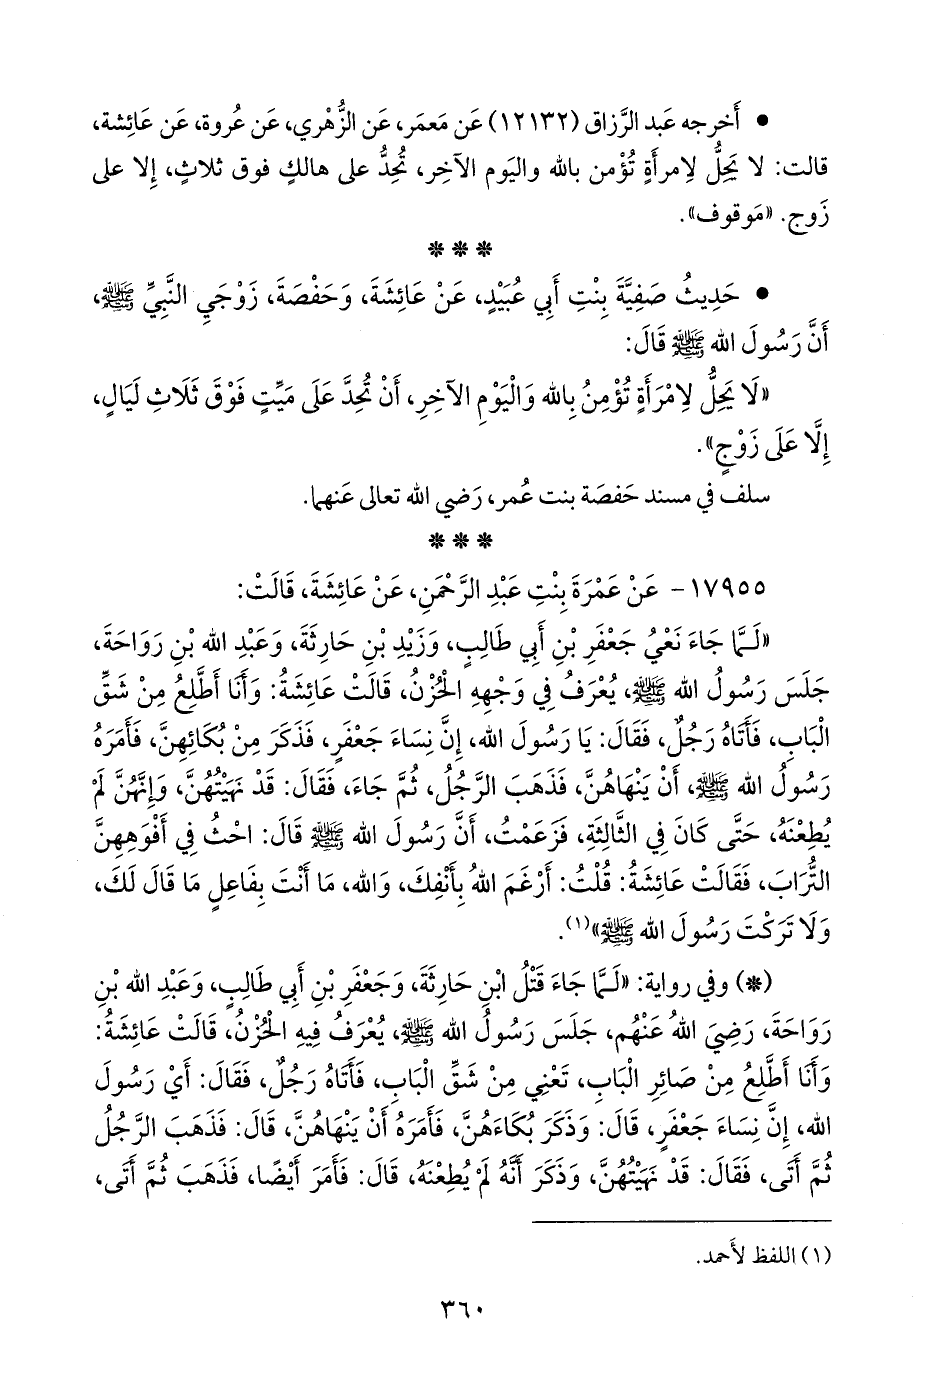 • أَخرجه عَبد الرَّزاق (١٢١٣٢) عَن مَعمَر، عَن الزُّهْري، عَن عُروة، عَن عَائِشة،
قالت: لا يَحِلُّ لِامرأَةٍ تُؤْمن بالله واليَوم الآخِر، تُحِدُّ على هالكٍ فوق ثلاثٍ، إِلا على
زَوج. «مَوقوف».
* * *
• حَدِيثُ صَفِيَّةَ بِنْتِ أَبِي عُبَيْدٍ، عَنْ عَائِشَةَ، وَحَفْصَةَ، زَوْجَيِ النَّبِيِّ ﷺ،
أَنَّ رَسُولَ الله ﷺ قَالَ:
«لَا يَحِلُّ لِامْرَأَةٍ تُؤْمِنُ بِالله وَالْيَوْمِ الآخِرِ، أَنْ تُحِدَّ عَلَى مَيِّتٍ فَوْقَ ثَلَاثِ لَيَالٍ،
إِلَّا عَلَى زَوْجٍ».
سلف في مسند حَفصَة بنت عُمر، رَضي الله تعالى عَنهما.
* * *
١٧٩٥٥- عَنْ عَمْرَةَ بِنْتِ عَبْدِ الرَّحْمَنِ، عَنْ عَائِشَةَ، قَالَتْ:
«لَمَّا جَاءَ نَعْيُ جَعْفَرِ بْنِ أَبِي طَالِبٍ، وَزَيْدِ بْنِ حَارِثَةَ، وَعَبْدِ الله بْنِ رَوَاحَةَ،
جَلَسَ رَسُولُ الله ﷺ، يُعْرَفُ فِي وَجْهِهِ الْحُزْنُ، قَالَتْ عَائِشَةُ: وَأَنَا أَطَّلِعُ مِنْ شَقِّ
الْبَابِ، فَأَتَاهُ رَجُلٌ، فَقَالَ: يَا رَسُولَ الله، إِنَّ نِسَاءَ جَعْفَرٍ، فَذَكَرَ مِنْ بُكَائِهِنَّ، فَأَمَرَهُ
رَسُولُ الله ﷺ، أَنْ يَنْهَاهُنَّ، فَذَهَبَ الرَّجُلُ، ثُمَّ جَاءَ، فَقَالَ: قَدْ نَهَيْتُهُنَّ، وَإِنَّهُنَّ لَمْ
يُطِعْنَهُ، حَتَّى كَانَ فِي الثَّالِثَةِ، فَزَعَمْتُ، أَنَّ رَسُولَ الله ﷺ قَالَ: احْثُ فِي أَفْوَهِهِنَّ
التُّرَابَ، فَقَالَتْ عَائِشَةُ: قُلْتُ: أَرْغَمَ اللهُ بِأَنْفِكَ، وَالله، مَا أَنْتَ بِفَاعِلٍ مَا قَالَ لَكَ،
وَلَا تَرَكْتَ رَسُولَ الله ﷺ»(١).
(*) وفي رواية: «لَمَّا جَاءَ قَتْلُ ابْنِ حَارِثَةَ، وَجَعْفَرِ بْنِ أَبِي طَالِبٍ، وَعَبْدِ الله بْنِ
رَوَاحَةَ، رَضِيَ اللهُ عَنْهُم، جَلَسَ رَسُولُ الله ﷺ، يُعْرَفُ فِيهِ الْحُزْنُ، قَالَتْ عَائِشَةُ:
وَأَنَا أَطَّلِعُ مِنْ صَائِرِ الْبَابِ، تَعْنِي مِنْ شَقِّ الْبَابِ، فَأَتَاهُ رَجُلٌ، فَقَالَ: أَيْ رَسُولَ
الله، إِنَّ نِسَاءَ جَعْفَرٍ، قَالَ: وَذَكَرَ بُكَاءَهُنَّ، فَأَمَرَهُ أَنْ يَنْهَاهُنَّ، قَالَ: فَذَهَبَ الرَّجُلُ
ثُمَّ أَتَى، فَقَالَ: قَدْ نَهَيْتُهُنَّ، وَذَكَرَ أَنَّهُ لَمْ يُطِعْنَهُ، قَالَ: فَأَمَرَ أَيْضًا، فَذَهَبَ ثُمَّ أَتَى،
(١) اللفظ لأَحمد.
٣٦٠